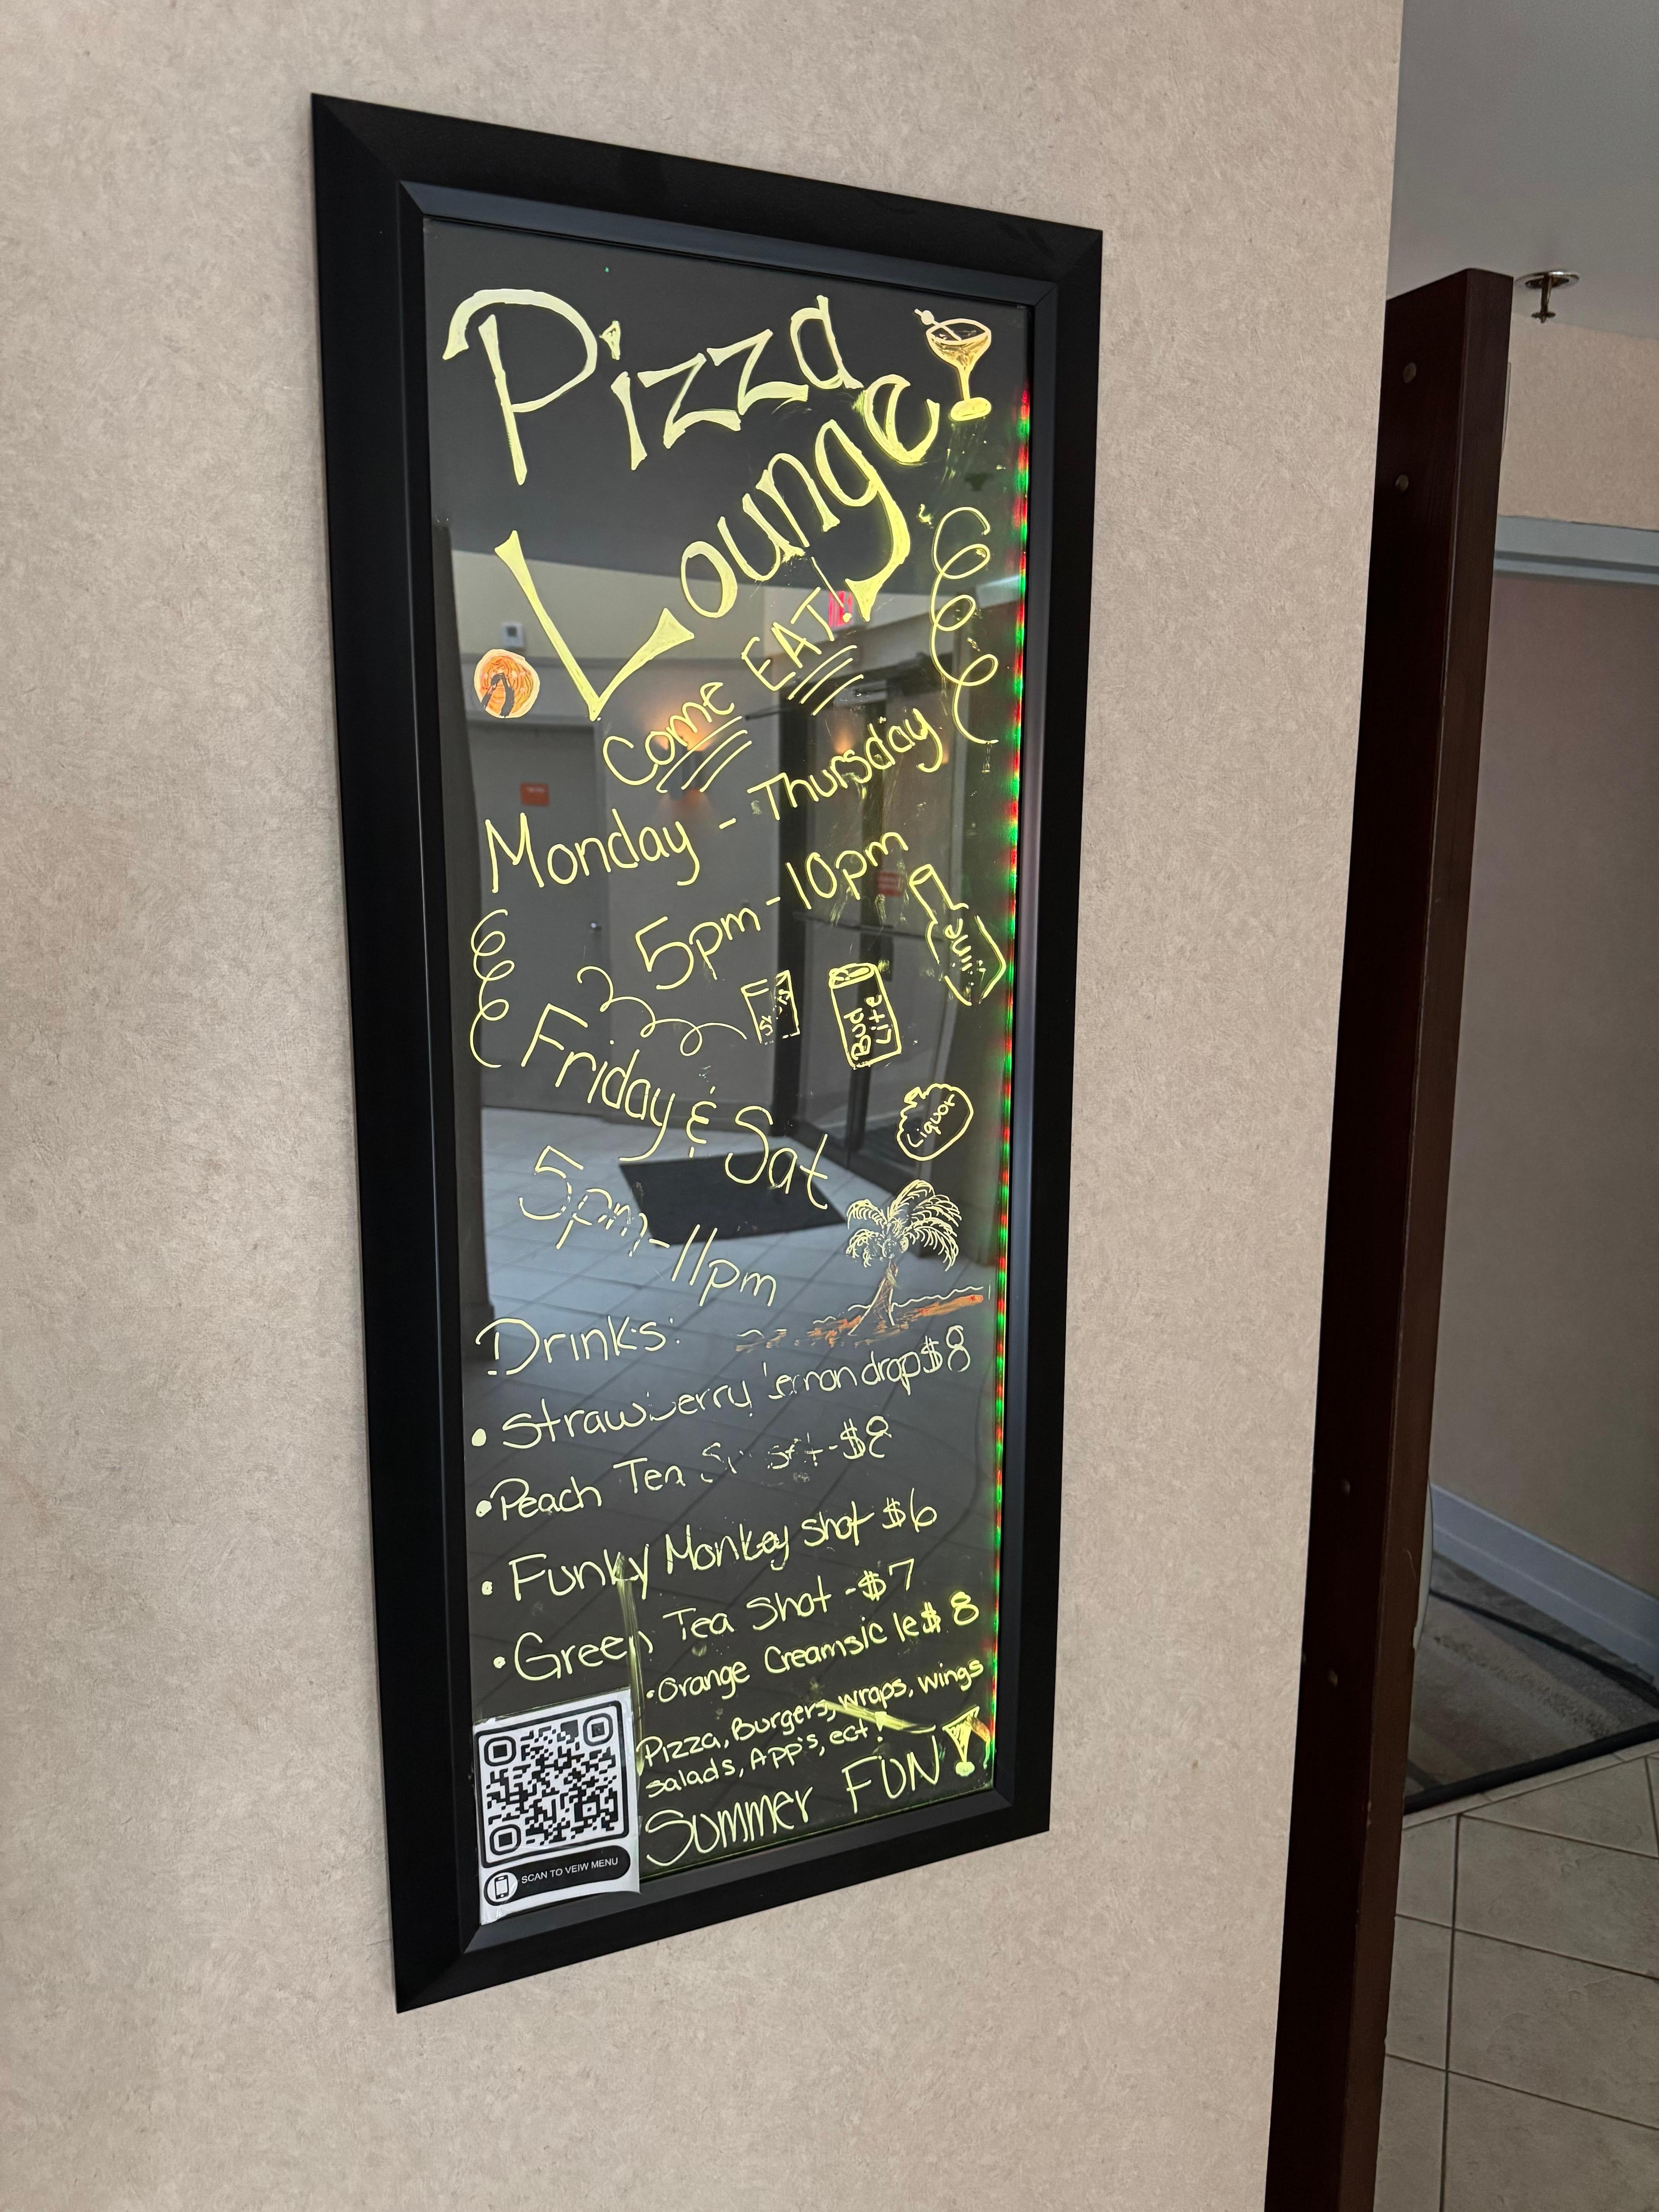 Pizza
Lounge
Come EAT!
Monday - Thursday
5pm - 10pm
Wine
Bud
Lite
Friday & Sat
Liquor
5pm-11pm
Drinks:
• Strawberry lemondrop $8
• Peach Tea - $8
• Funky Monkey Shot $6
• Green Tea Shot - $7
• Orange Creamsicle $8
Pizza, Burgers, wraps, wings
salads, App's, ect!
Summer FUN
SCAN TO VEIW MENU